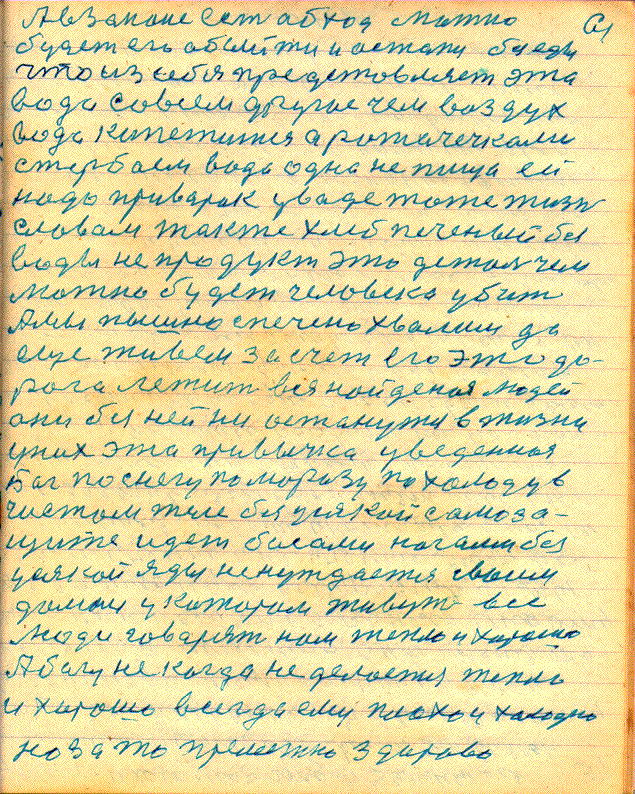 А в законе ест абход можно
61
будет его абыйти и остатя без еды
что из себя предстовляет эта
вода совсем другое чем воздух
вода кипетится а ротачечками
стербаем вода одна не пища ей
надо приварак у ваде тоже жизн
словам также хлеб печеный без
воды не продукт это детоя чем
можно будет человека убит
А мы пышно спечено хвалим да
еще живем за счет его Это до-
рога лежит вся найденая людей
они без ней ни останутя в жизни
у них эта привычка уведенная
Бог по снегу по морозу по холоду в
чистом теле без усякой самоза-
щите идет босами ногами без
усякой яды ненуждается своим
домом у котором живут все
люди говарят нам тепло и харошо
А богу не когда не делоется тепло
и харошо всегда ему плохо и холодно
но за то прелестно здарово